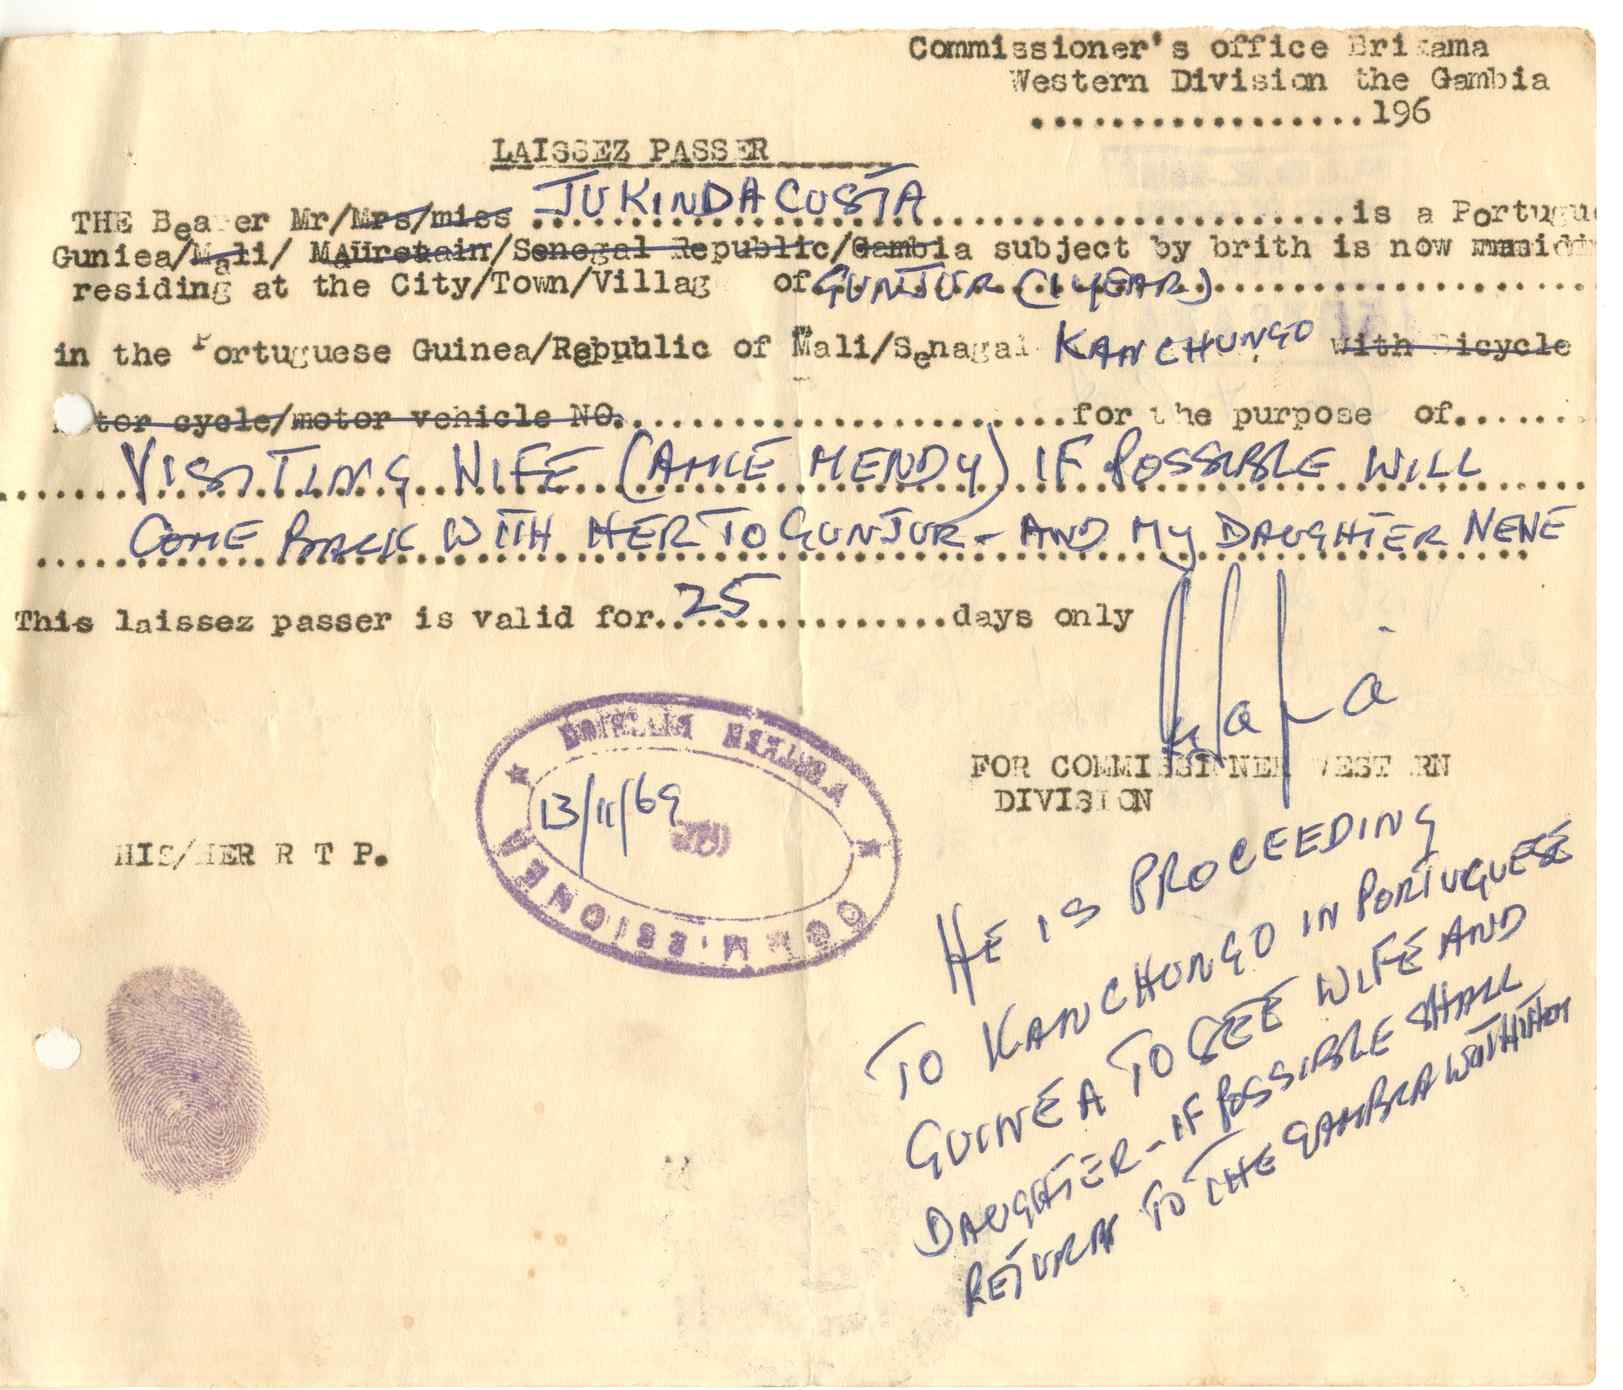 Commissioner's office Brikama
Western Division the Gambia
..................196
LAISSEZ PASSER
THE Bearer Mr/Mrs/miss JUKINDA COSTA is a Portugue
Guniea/Mali/ MAUretain/Senegal Republic/Gambia subject by brith is now
residing at the City/Town/Villag of GUNJUR (1 YEAR)
in the Portuguese Guinea/Republic of Mali/Senagal KANCHUNGO with Bicycle
motor cycle/motor vehicle NO. for the purpose of
VISITING WIFE (AMIE MENDY) IF POSSIBLE WILL
COME BACK WITH HER TO GUNJUR - AND MY DAUGHTER NENE
This laissez passer is valid for 25 days only
FOR COMMISSIONER WESTERN
DIVISION
HIS/HER R T P.
COMMISSIONER WESTERN DIVISION
13/11/69
HE IS PROCEEDING
TO KANCHUNGO IN PORTUGUESE
GUINEA TO SEE WIFE AND
DAUGHTER - IF POSSIBLE SHALL
RETURN TO THE GAMBIA WITH